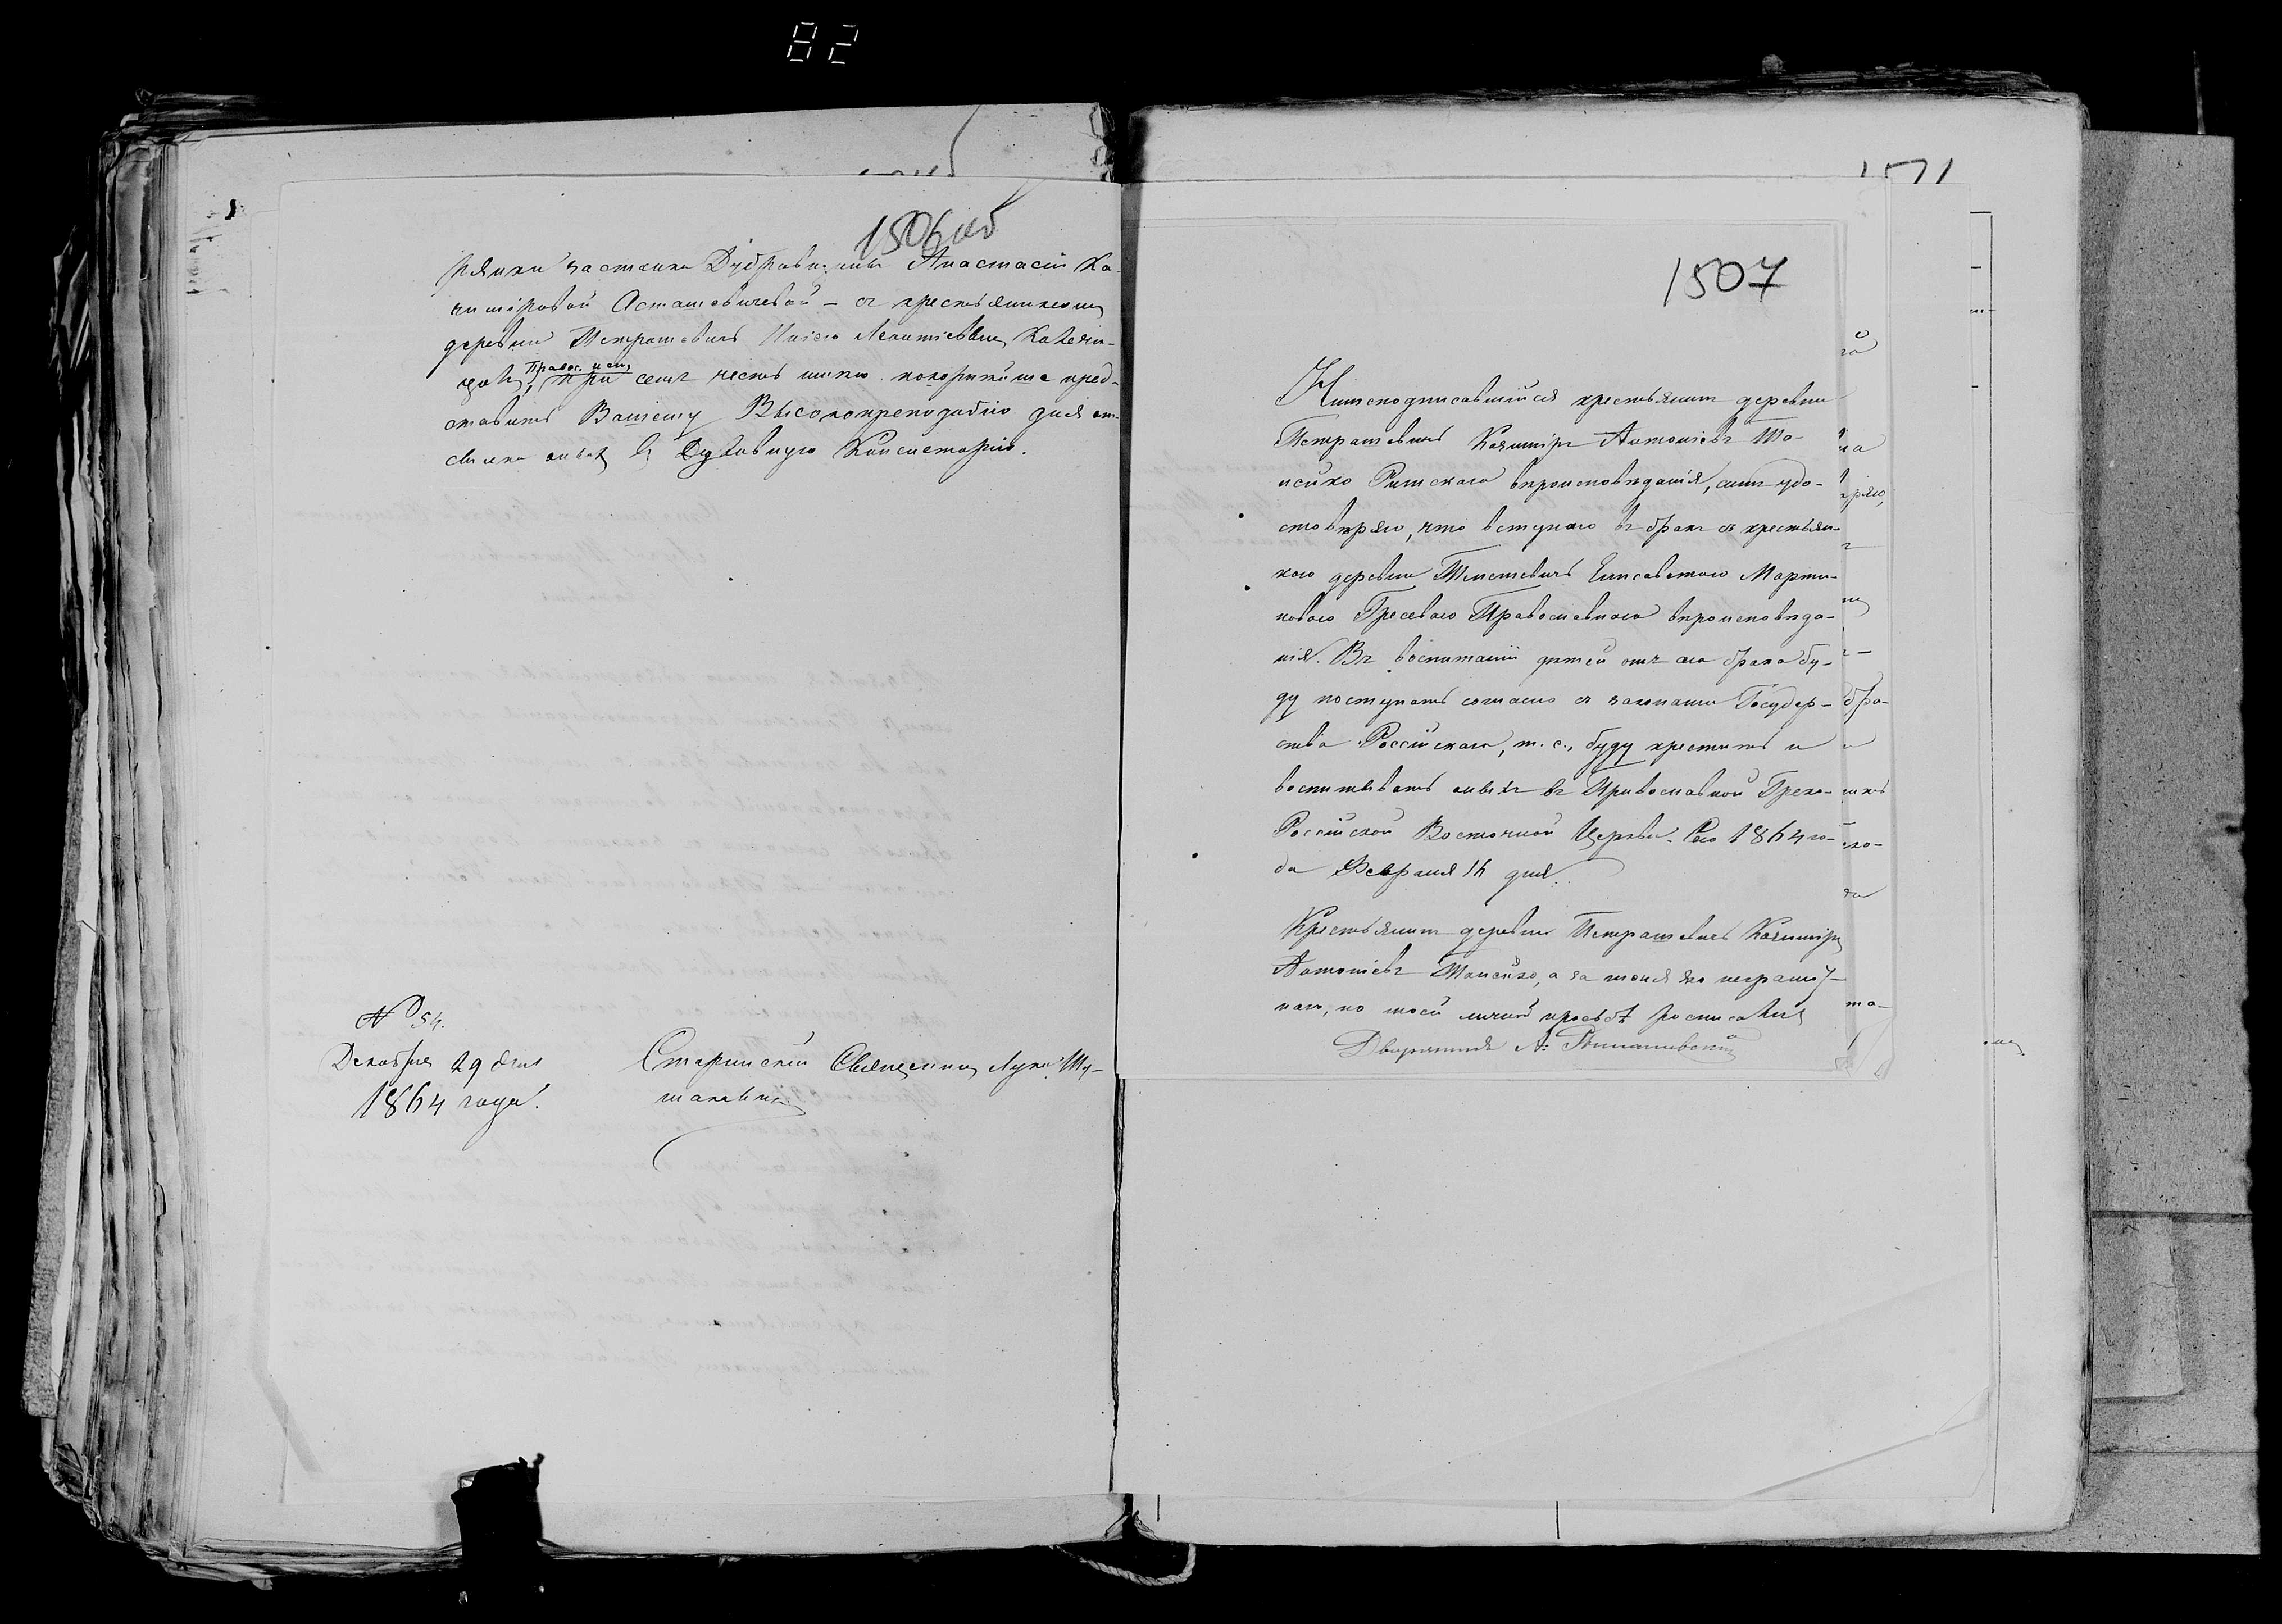 82
1506 об
рянки застенка Дубравы, Анастасіи Ка-
зиміровой Асташевичевой — съ крестьяниномъ
деревни Петрашевичъ Леонтіевымъ
Правос. исп.
при семъ честь имѣю покорнѣйше пред-
ставить Вашему Высокопреподобію для от-
сылки оныхъ въ Духовную Консисторію.
№ 54.
Декабря 29 дня
1864 года.
Старинскій Священникъ Лука Ту-
1571
1507
Нижеподписавшійся крестьянинъ деревни
Петрашевичъ Казиміръ Антоніевъ Мо-
исейко Римскаго вѣроисповѣданія, симъ удо-
стовѣряю, что вступаю въ бракъ съ крестьян-
кою деревни Елисаветою Марти-
новою Православнаго вѣроисповѣда-
нія. Въ воспитаніи дѣтей отъ сего брака бу-
ду поступать согласно съ законами Государ-
ства Россійскаго, т. е., буду крестить и
воспитывать оныхъ въ Православной Греко-
Россійской Восточной Церкви. Сего 1864 го-
да Февраля 14 дня.
Крестьянинъ деревни Петрашевичъ Казиміръ
Антоніевъ Моисейко, а за меня яко неграмот-
наго, по моей личной просьбѣ росписался
Дворянинъ А: